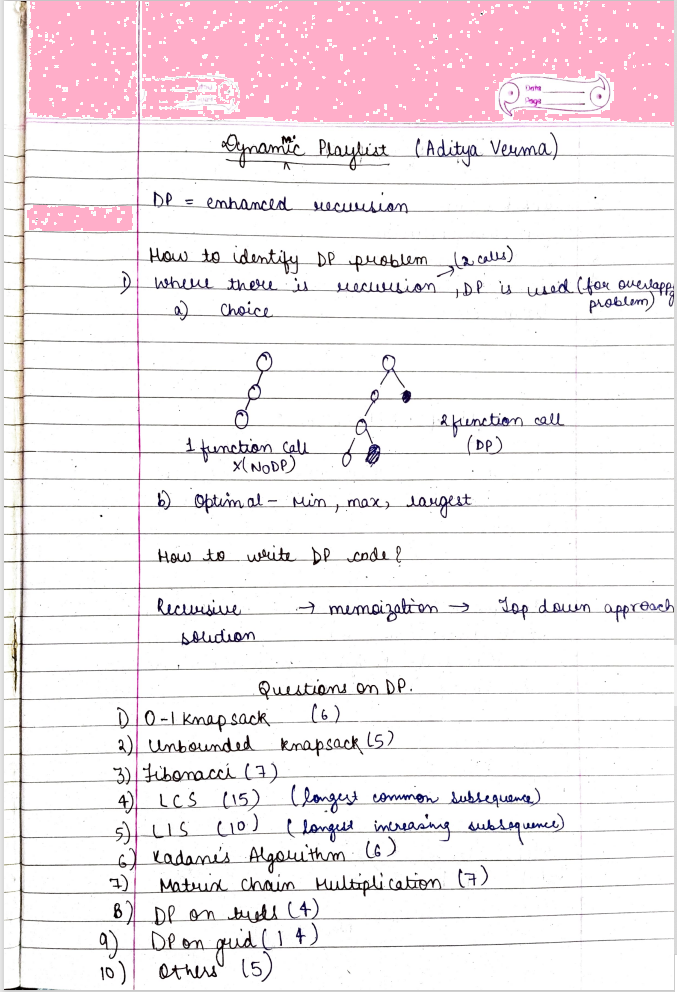 Date
Page
Dynamic Playlist (Aditya Verma)
DP = enhanced recursion
How to identify DP problem (2 calls)
1) Where there is recursion → , DP is used (for overlapp
problem)
a) Choice
1 function call
X(NODP)
2 function call
(DP)
b) Optimal - Min, max, largest
How to write DP code?
Recursive → memoization → Top down approach
solution
Questions on DP.
1) 0-1 Knapsack (6)
2) Unbounded knapsack (5)
3) Fibonacci (7)
4) LCS (15) (longest common subsequence)
5) LIS (10) (longest increasing subsequence)
6) Kadane's Algorithm (6)
7) Matrix chain Multiplication (7)
8) DP on trees (4)
9) DP on grid (14)
10) Others (5)